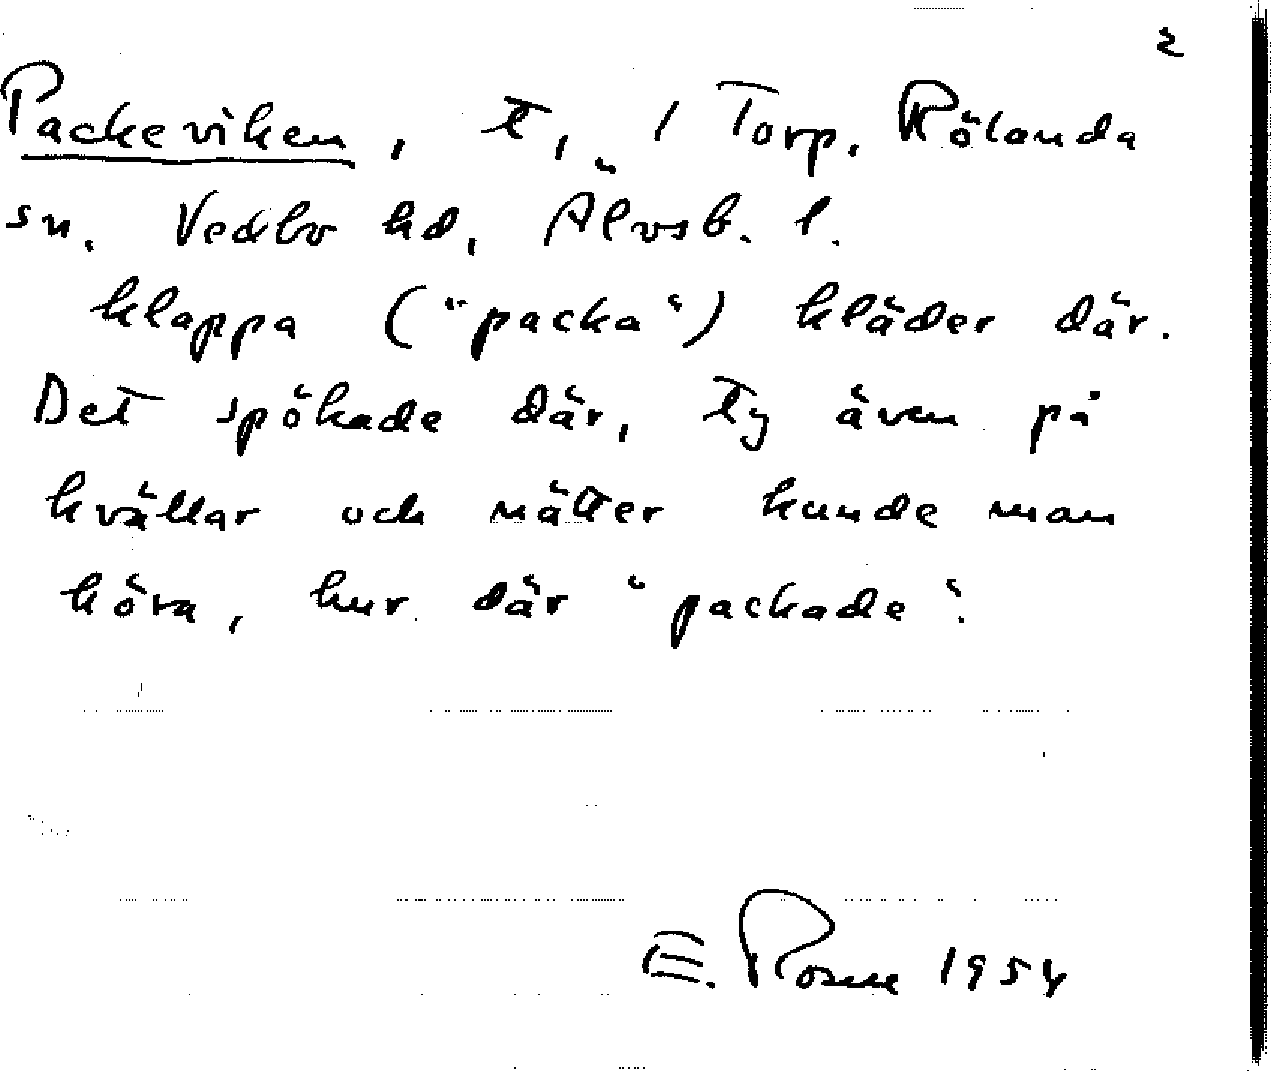 2
Packeviken, t, 1 Torp. Rölanda
sn. Vedbo hd, Älvsb. l.
klappa ("packa") kläder där.
Det spökade där, ty även på
kvällar och nätter kunde man
höra, hur där "packade".
E. Rosen 1954